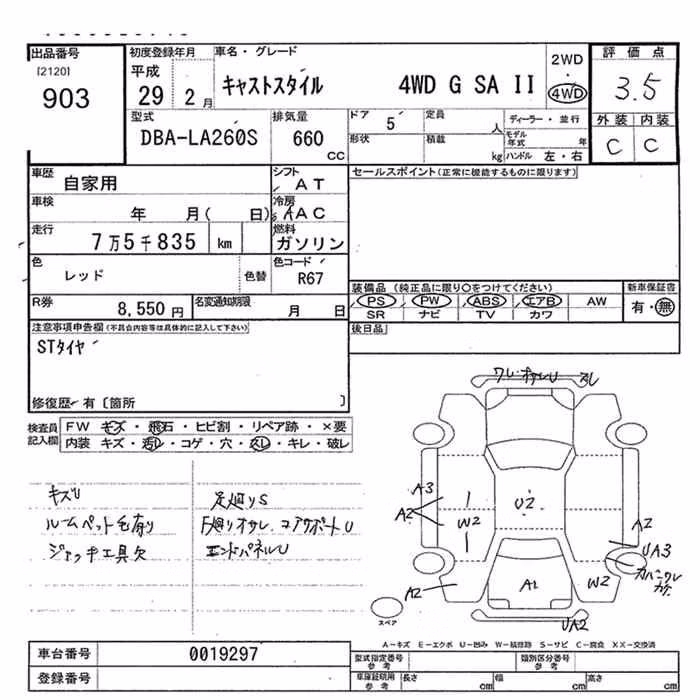 出品番号
[2120]
903
初度登録年月
平成
29 2月
車名・グレード
キャストスタイル 4WD G SA II
2WD
・
4WD
評価点
3.5
外装 内装
C C
型式
DBA-LA260S
排気量
660
CC
ドア 5
定員
人
形状
積載
kg
ディーラー・並行
モデル年式 年
ハンドル 左・右
車歴
自家用
シフト
AT
車検
年 月( 日)
冷房
AAC
走行
7万5千835 km
燃料
ガソリン
色
レッド
色替
色コード
R67
R券
8,550円
名変通知期限
月 日
セールスポイント(正常に機能するものに限ります)
装備品 (純正品に限り○をつけてください)
PS PW ABS エアB AW
SR ナビ TV カワ
新車保証書
有・無
後日品
注意事項申告欄(不具合内容等は具体的に記入して下さい)
STタイヤ
修復歴 有〔箇所 〕
検査員記入欄
FW キズ・飛石・ヒビ割・リペア跡・×要
内装 キズ・汚レ・コゲ・穴・スレ・キレ・破レ
キズU
ルームペット毛有り
ジャッキ工具欠
足廻りS
下廻りオサレ コアサポートU
エンドパネルU
スレ
A3
A2
W2
U2
A2
UA3
カバーワレ
カケ
A2
A1
W2
UA2
スペア
A-キズ E-エクボ U-凹み W-補修跡 S-サビ C-腐食 XX-交換済
車台番号
0019297
登録番号
型式指定番号
参考
類別区分番号
参考
車庫証明用
参考
長さ cm
幅 cm
高さ cm